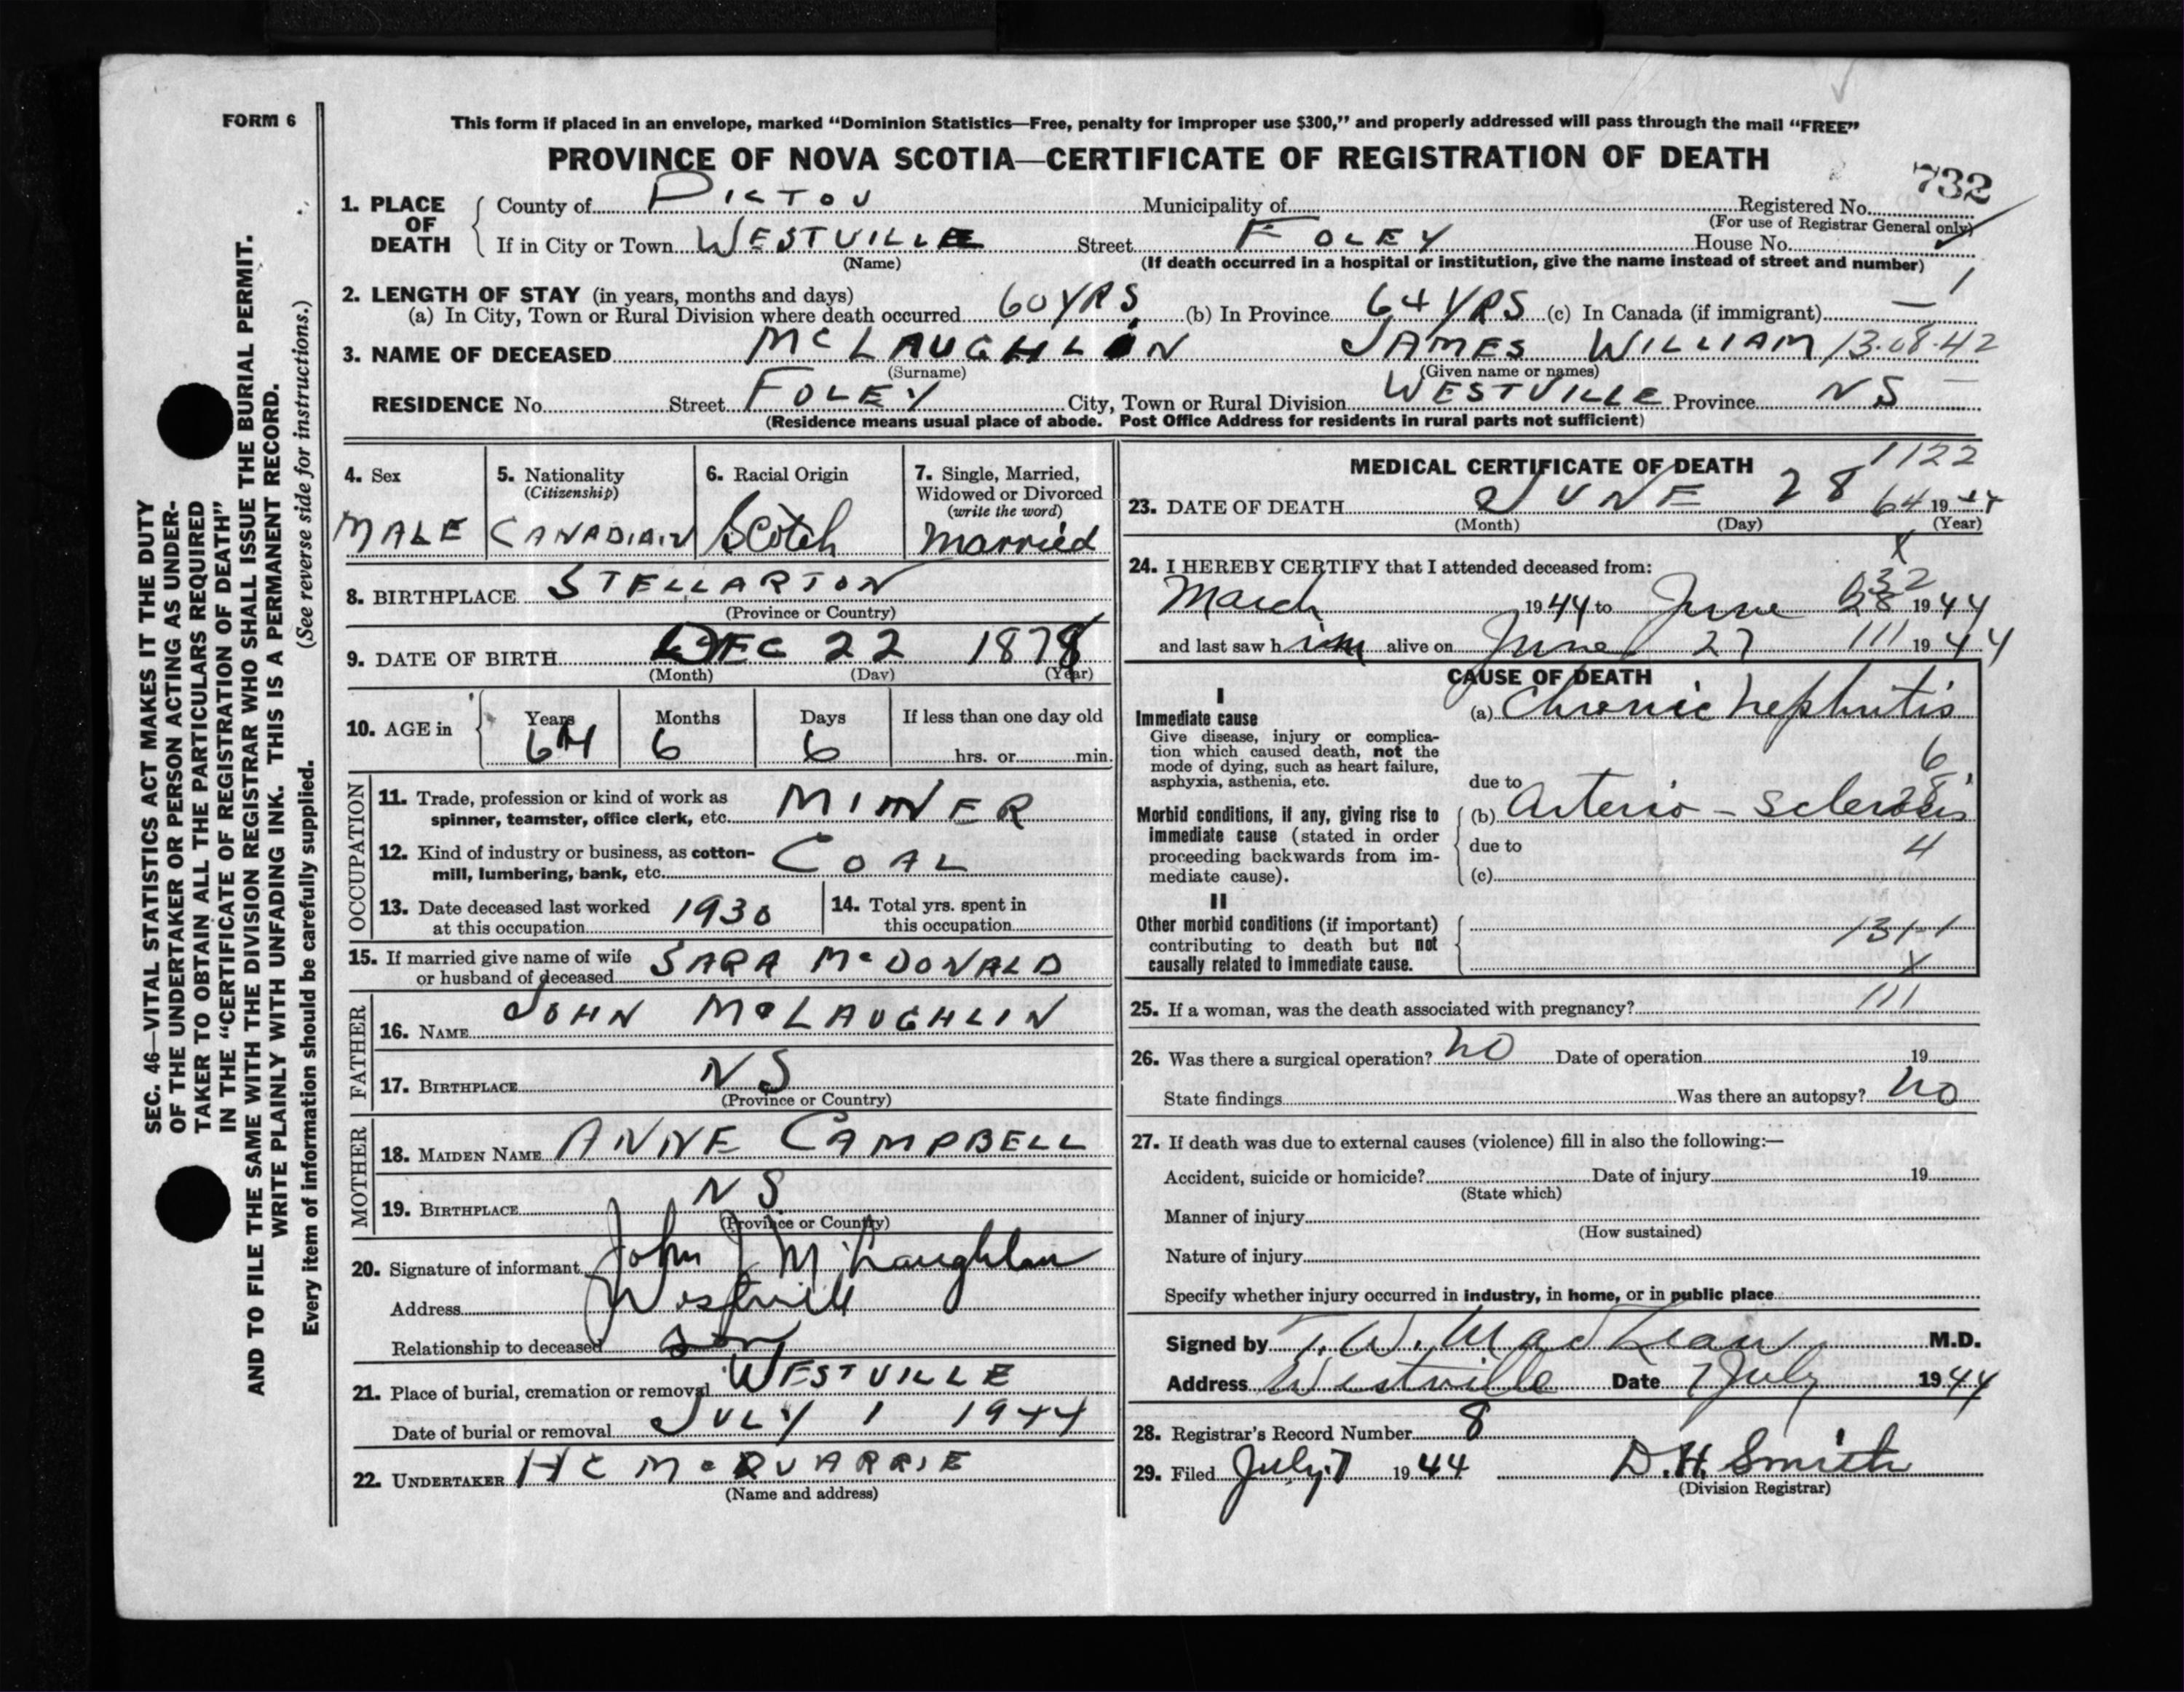 FORM 6
This form if placed in an envelope, marked “Dominion Statistics—Free, penalty for improper use $300,” and properly addressed will pass through the mail “FREE”
PROVINCE OF NOVA SCOTIA—CERTIFICATE OF REGISTRATION OF DEATH
732
1. PLACE OF DEATH
County of PICTOU Municipality of Registered No.
(For use of Registrar General only)
If in City or Town WESTVILLE Street FOLEY House No.
(Name) (If death occurred in a hospital or institution, give the name instead of street and number)
1
2. LENGTH OF STAY (in years, months and days)
(a) In City, Town or Rural Division where death occurred 60 YRS (b) In Province 64 YRS (c) In Canada (if immigrant) —
3. NAME OF DECEASED MCLAUGHLIN JAMES WILLIAM 13-08-42
(Surname) (Given name or names)
RESIDENCE No. Street FOLEY City, Town or Rural Division WESTVILLE Province NS
(Residence means usual place of abode. Post Office Address for residents in rural parts not sufficient)
4. Sex
MALE
5. Nationality
(Citizenship)
CANADIAN
6. Racial Origin
Scotch
7. Single, Married,
Widowed or Divorced
(write the word)
Married
8. BIRTHPLACE STELLARTON
(Province or Country)
9. DATE OF BIRTH DEC 22 1878
(Month) (Day) (Year)
10. AGE in
Years Months Days If less than one day old
64 6 6 hrs. or min.
OCCUPATION
11. Trade, profession or kind of work as
spinner, teamster, office clerk, etc. MINER
12. Kind of industry or business, as cotton-
mill, lumbering, bank, etc. COAL
13. Date deceased last worked
at this occupation 1930
14. Total yrs. spent in
this occupation
15. If married give name of wife
or husband of deceased SARA McDONALD
FATHER
16. NAME JOHN McLAUGHLIN
17. BIRTHPLACE NS
(Province or Country)
MOTHER
18. MAIDEN NAME ANNE CAMPBELL
19. BIRTHPLACE NS
(Province or Country)
20. Signature of informant John J McLaughlan
Address Westville
Relationship to deceased son
21. Place of burial, cremation or removal WESTVILLE
Date of burial or removal JULY 1 1944
22. UNDERTAKER HC McQUARRIE
(Name and address)
MEDICAL CERTIFICATE OF DEATH
1122
23. DATE OF DEATH JUNE 28 64 1944
(Month) (Day) (Year)
X
24. I HEREBY CERTIFY that I attended deceased from:
032
March 1944 to June 28 1944
and last saw him alive on June 27 111 1944
CAUSE OF DEATH
I
Immediate cause
Give disease, injury or complica-
tion which caused death, not the
mode of dying, such as heart failure,
asphyxia, asthenia, etc.
(a) Chronic nephritis
6
due to
Morbid conditions, if any, giving rise to
immediate cause (stated in order
proceeding backwards from im-
mediate cause).
(b) Arterio-sclerosis
28
due to
4
(c)
II
Other morbid conditions (if important)
contributing to death but not
causally related to immediate cause.
131-1
X
25. If a woman, was the death associated with pregnancy? 111
26. Was there a surgical operation? no Date of operation 19
State findings Was there an autopsy? no
27. If death was due to external causes (violence) fill in also the following:—
Accident, suicide or homicide? Date of injury 19
(State which)
Manner of injury
(How sustained)
Nature of injury
Specify whether injury occurred in industry, in home, or in public place
Signed by T. W. MacLean M.D.
Address Westville Date 7 July 1944
28. Registrar's Record Number 8
29. Filed July 7 1944 D.H. Smith
(Division Registrar)
SEC. 46—VITAL STATISTICS ACT MAKES IT THE DUTY
OF THE UNDERTAKER OR PERSON ACTING AS UNDER-
TAKER TO OBTAIN ALL THE PARTICULARS REQUIRED
IN THE “CERTIFICATE OF REGISTRATION OF DEATH”
AND TO FILE THE SAME WITH THE DIVISION REGISTRAR WHO SHALL ISSUE THE BURIAL PERMIT.
WRITE PLAINLY WITH UNFADING INK. THIS IS A PERMANENT RECORD.
Every item of information should be carefully supplied. (See reverse side for instructions.)